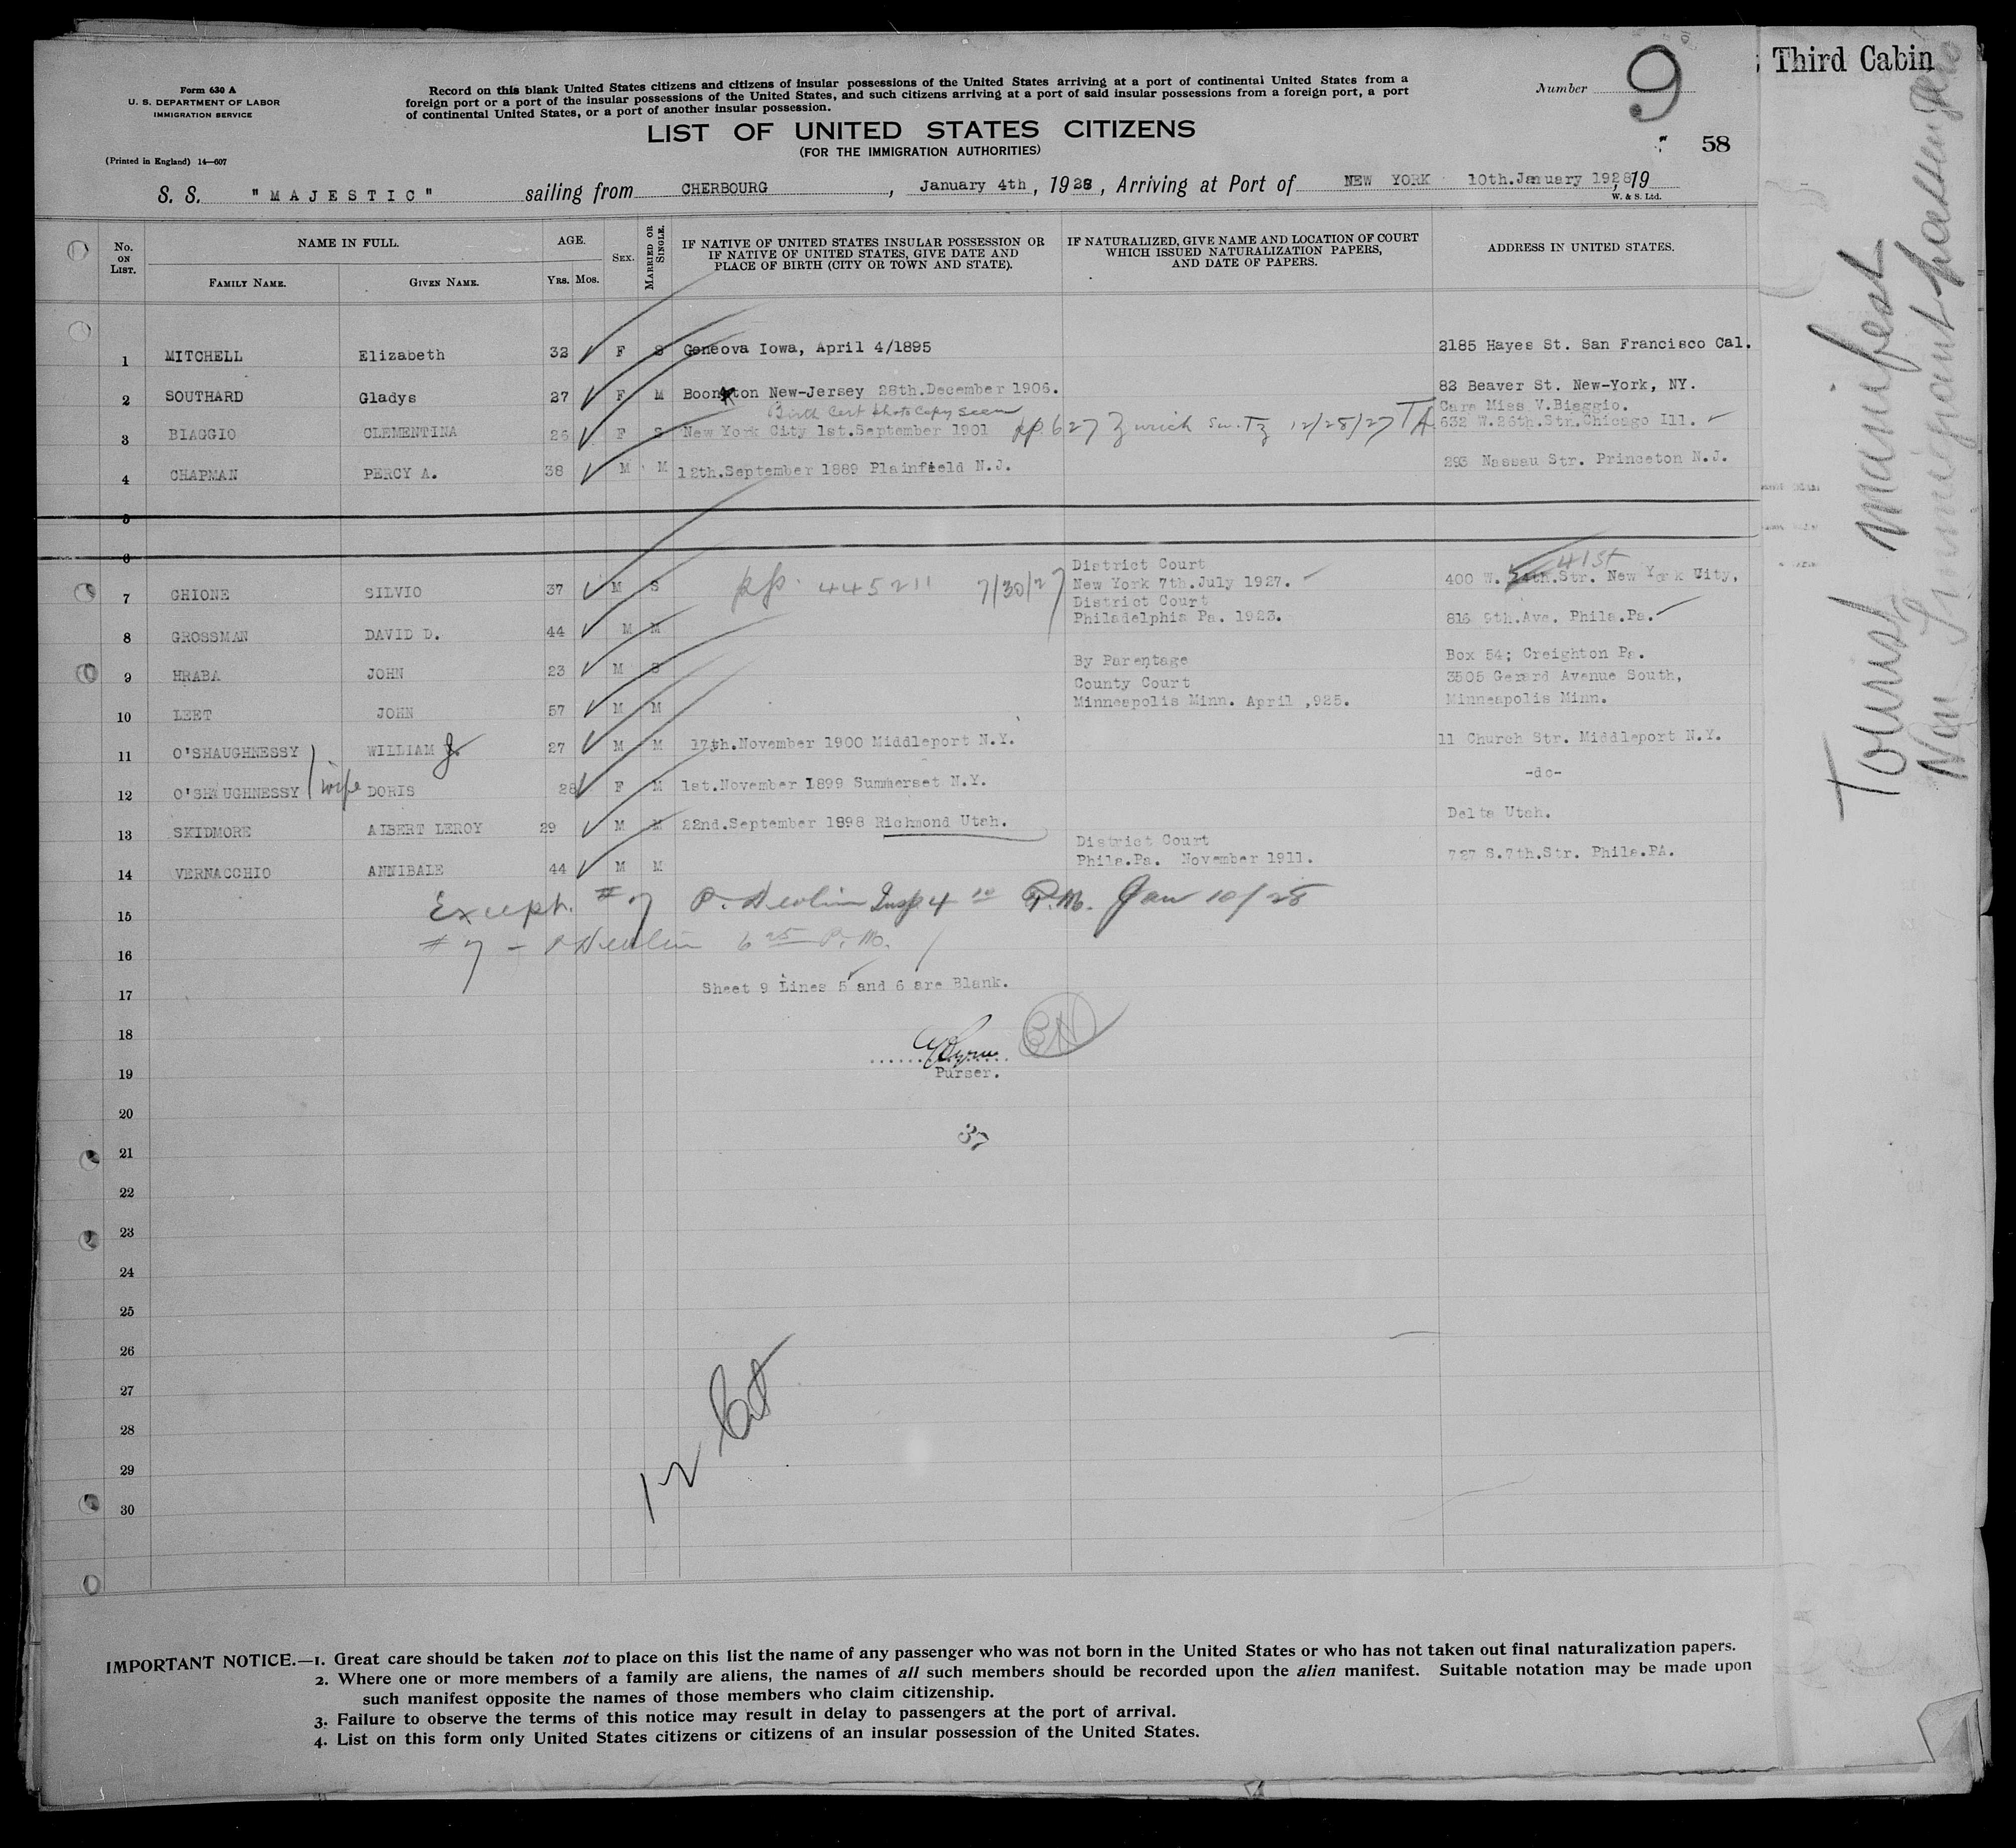 Third Cabin
Form 630 A
U. S. DEPARTMENT OF LABOR
IMMIGRATION SERVICE
(Printed in England) 14—607
Record on this blank United States citizens and citizens of insular possessions of the United States arriving at a port of continental United States from a
foreign port or a port of the insular possessions of the United States, and such citizens arriving at a port of said insular possessions from a foreign port, a port
of continental United States, or a port of another insular possession.
Number 9
58
LIST OF UNITED STATES CITIZENS
(FOR THE IMMIGRATION AUTHORITIES)
S. S. "MAJESTIC" sailing from CHERBOURG, January 4th, 1928, Arriving at Port of NEW YORK 10th.January 1928, 19
W. & S. Ltd.
No. ON LIST. NAME IN FULL. FAMILY NAME. GIVEN NAME. AGE. YRS. MOS. SEX. MARRIED OR SINGLE. IF NATIVE OF UNITED STATES INSULAR POSSESSION OR IF NATIVE OF UNITED STATES, GIVE DATE AND PLACE OF BIRTH (CITY OR TOWN AND STATE). IF NATURALIZED, GIVE NAME AND LOCATION OF COURT WHICH ISSUED NATURALIZATION PAPERS, AND DATE OF PAPERS. ADDRESS IN UNITED STATES.
1 MITCHELL Elizabeth 32 F S Geneova Iowa, April 4/1895 2185 Hayes St. San Francisco Cal.
2 SOUTHARD Gladys 27 F M Boonton New-Jersey 28th.December 1906. 82 Beaver St. New-York, NY.
Birth Cert photo copy seen Care Miss V.Biaggio.
3 BIAGGIO CLEMENTINA 26 F S New York City 1st.September 1901 pp. 627 Zurich Switz 12/28/27 TA 632 W.26th.Str.Chicago Ill.
4 CHAPMAN PERCY A. 38 M M 12th.September 1889 Plainfield N.J. 293 Nassau Str. Princeton N.J.
5
6
District Court 41st
7 GHIONE SILVIO 37 M S pp. 445211 7/30/27 New York 7th.July 1927. 400 W. Str. New York City,
District Court
8 GROSSMAN DAVID D. 44 M M Philadelphia Pa. 1923. 816 9th.Ave. Phila.Pa.
9 HRABA JOHN 23 M S By Parentage Box 54; Creighton Pa.
County Court 3505 Gerard Avenue South,
10 LEET JOHN 57 M M Minneapolis Minn. April ,925. Minneapolis Minn.
11 O'SHAUGHNESSY WILLIAM J. 27 M M 17th.November 1900 Middleport N.Y. 11 Church Str. Middleport N.Y.
12 O'SHAUGHNESSY wife DORIS 28 F M 1st.November 1899 Summerset N.Y. -do-
13 SKIDMORE ALBERT LEROY 29 M M 22nd.September 1898 Richmond Utah. Delta Utah.
District Court
14 VERNACCHIO ANNIBALE 44 M M Phila.Pa. November 1911. 727 S.7th.Str. Phila.PA.
15 Except. #7 P. Devlin Insp 4 10 P.M. Jan 10/28
16 #7 - P Devlin 6 25 P.M.
17 Sheet 9 Lines 5 and 6 are Blank.
18
19 Purser.
20
37
21
22
23
24
25
26
27
28
29
30
12 Cit
IMPORTANT NOTICE.—1. Great care should be taken not to place on this list the name of any passenger who was not born in the United States or who has not taken out final naturalization papers.
2. Where one or more members of a family are aliens, the names of all such members should be recorded upon the alien manifest. Suitable notation may be made upon
such manifest opposite the names of those members who claim citizenship.
3. Failure to observe the terms of this notice may result in delay to passengers at the port of arrival.
4. List on this form only United States citizens or citizens of an insular possession of the United States.
Tourist Mainfest
Non Immigrant passengers